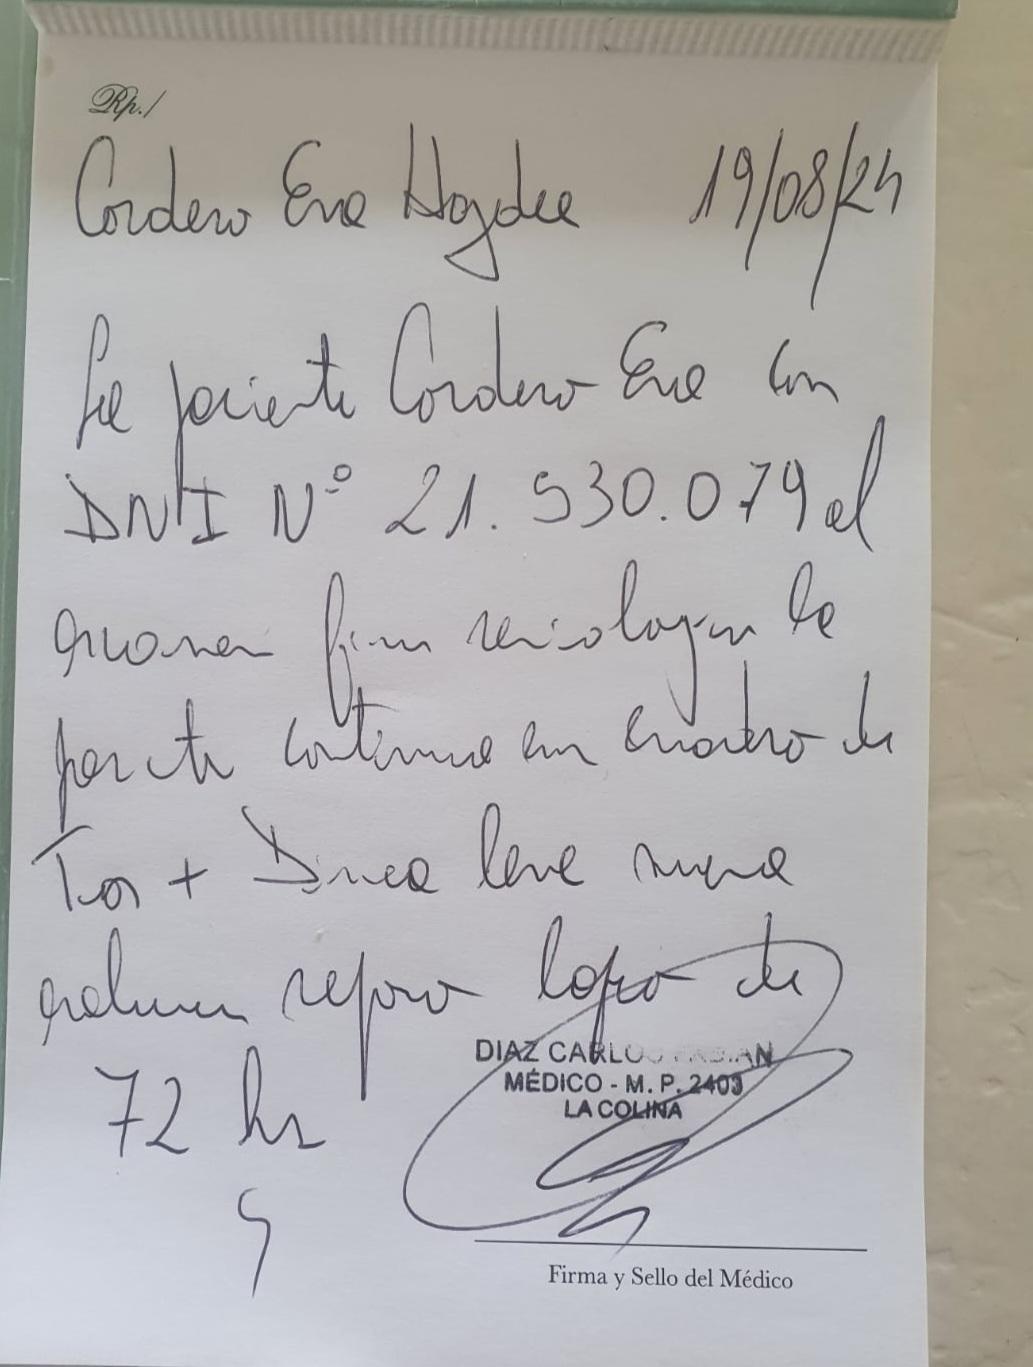 Rp./
Cordero Eva Haydee 19/08/24
La paciente Cordero Eva con
DNI Nº 21.530.079 al
examen
paciente continua con cuadro de
Tos + Disnea leve
reposo lapso de
72 hs
DIAZ CARLOS FABIAN
MÉDICO - M. P. 2403
LA COLINA
Firma y Sello del Médico